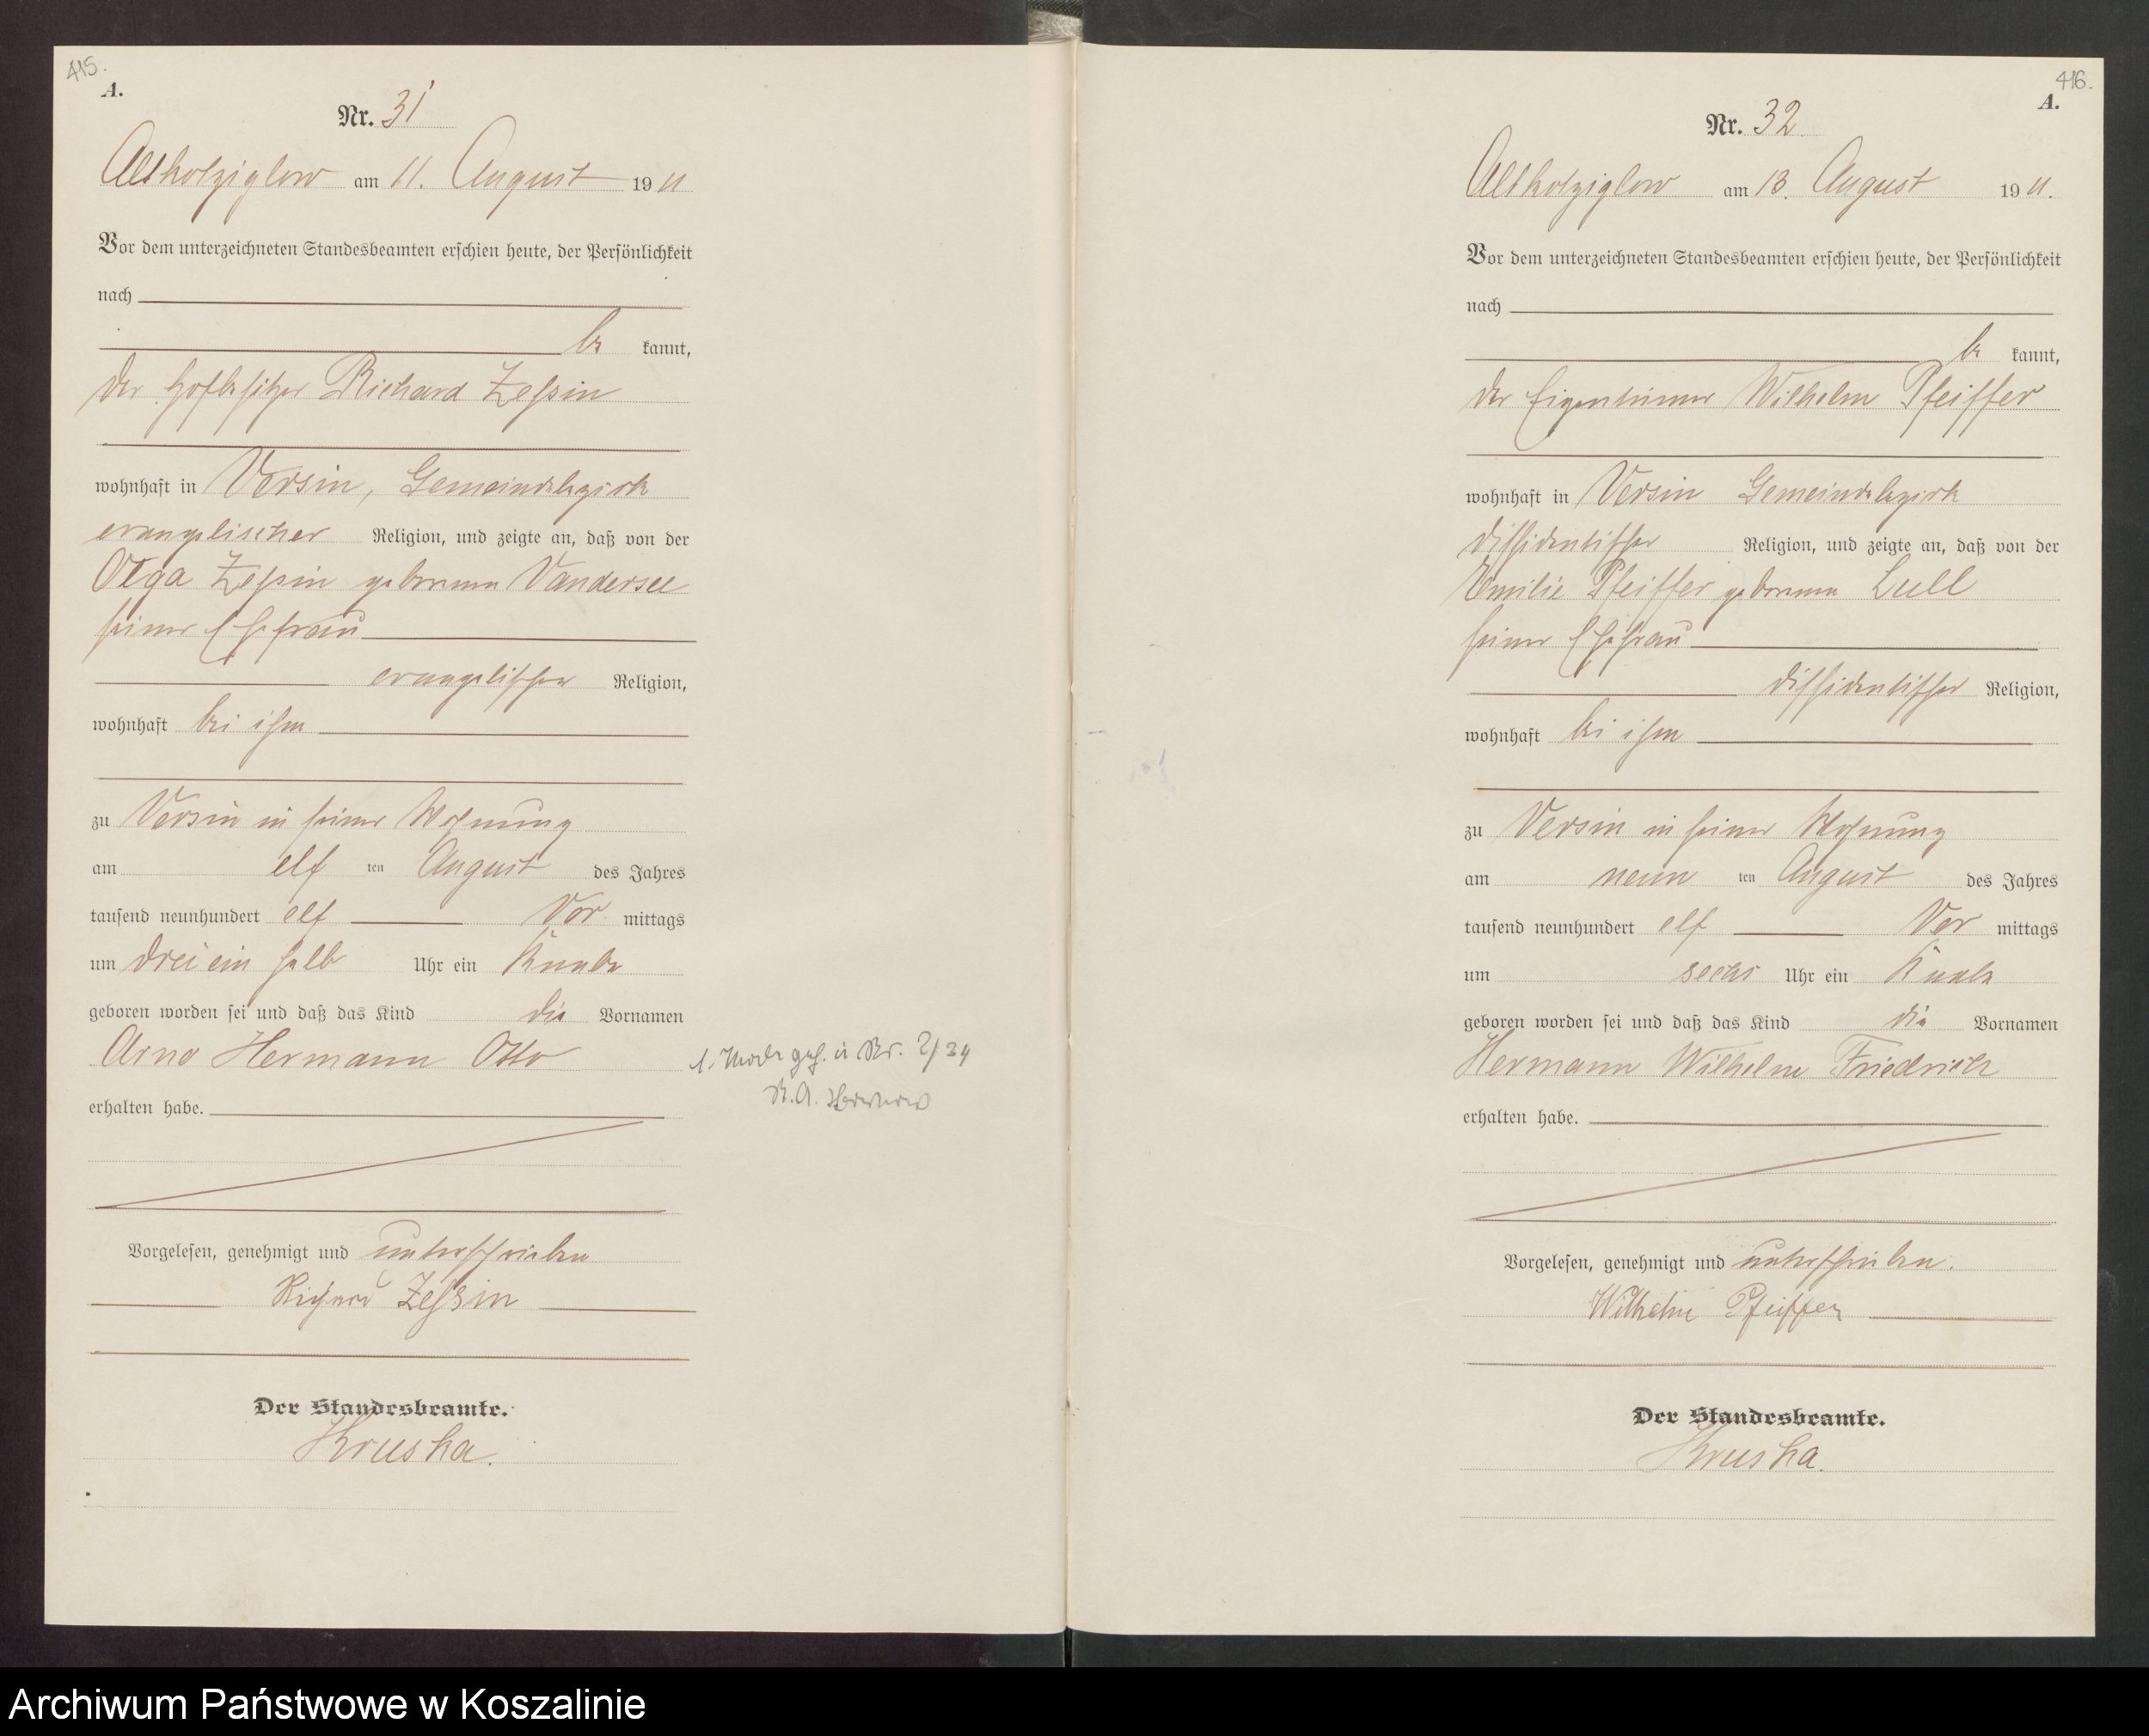 415.
A.
Nr. 31
Altkolziglow am 11. August 1911
Vor dem unterzeichneten Standesbeamten erschien heute, der Persönlichkeit
nach
be kannt,
der Hofbesitzer Richard Zessin
wohnhaft in Versin, Gemeindebezirk
evangelischer Religion, und zeigte an, daß von der
Olga Zessin geborenen Vandersee
seiner Ehefrau
evangelischer Religion,
wohnhaft bei ihm
zu Versin in seiner Wohnung
am elf ten August des Jahres
tausend neunhundert elf Vor mittags
um drei ein halb Uhr ein Knabe
geboren worden sei und daß das Kind die Vornamen
Arno Hermann Otto
erhalten habe.
Vorgelesen, genehmigt und unterschrieben
Richard Zessin
Der Standesbeamte.
Kruska.
1. Nr. 2/34
416.
A.
Nr. 32
Altkolziglow am 13. August 1911.
Vor dem unterzeichneten Standesbeamten erschien heute, der Persönlichkeit
nach
be kannt,
der Eigentümer Wilhelm Pfeiffer
wohnhaft in Versin Gemeindebezirk
dissidentischer Religion, und zeigte an, daß von der
Emilie Pfeiffer geborenen Lull
seiner Ehefrau
dissidentischer Religion,
wohnhaft bei ihm
zu Versin in seiner Wohnung
am neun ten August des Jahres
tausend neunhundert elf Vor mittags
um sechs Uhr ein Knabe
geboren worden sei und daß das Kind die Vornamen
Hermann Wilhelm Friedrich
erhalten habe.
Vorgelesen, genehmigt und unterschrieben.
Wilhelm Pfeiffer
Der Standesbeamte.
Kruska.
Archiwum Państwowe w Koszalinie